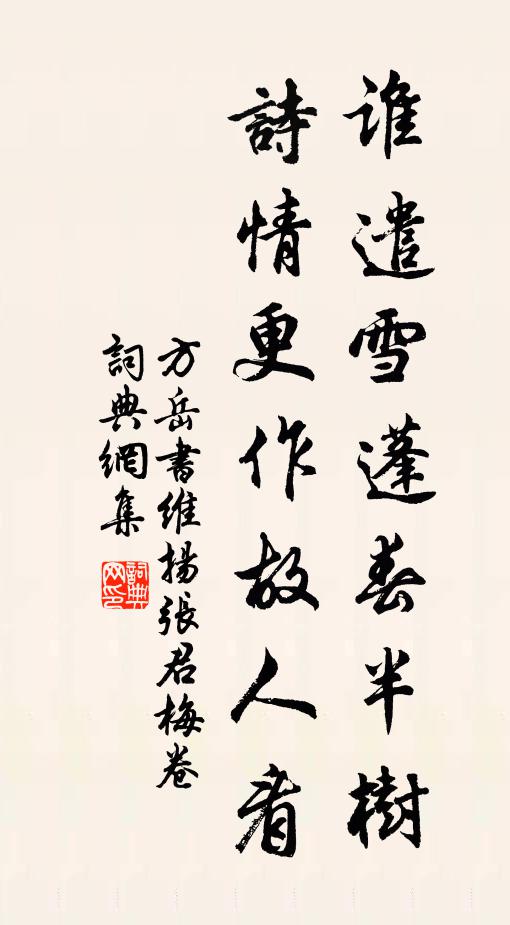 谁遣雪蓬春半樹
詩情更作故人看
方岳書維揚張君梅卷
詞典網集
詞典网印